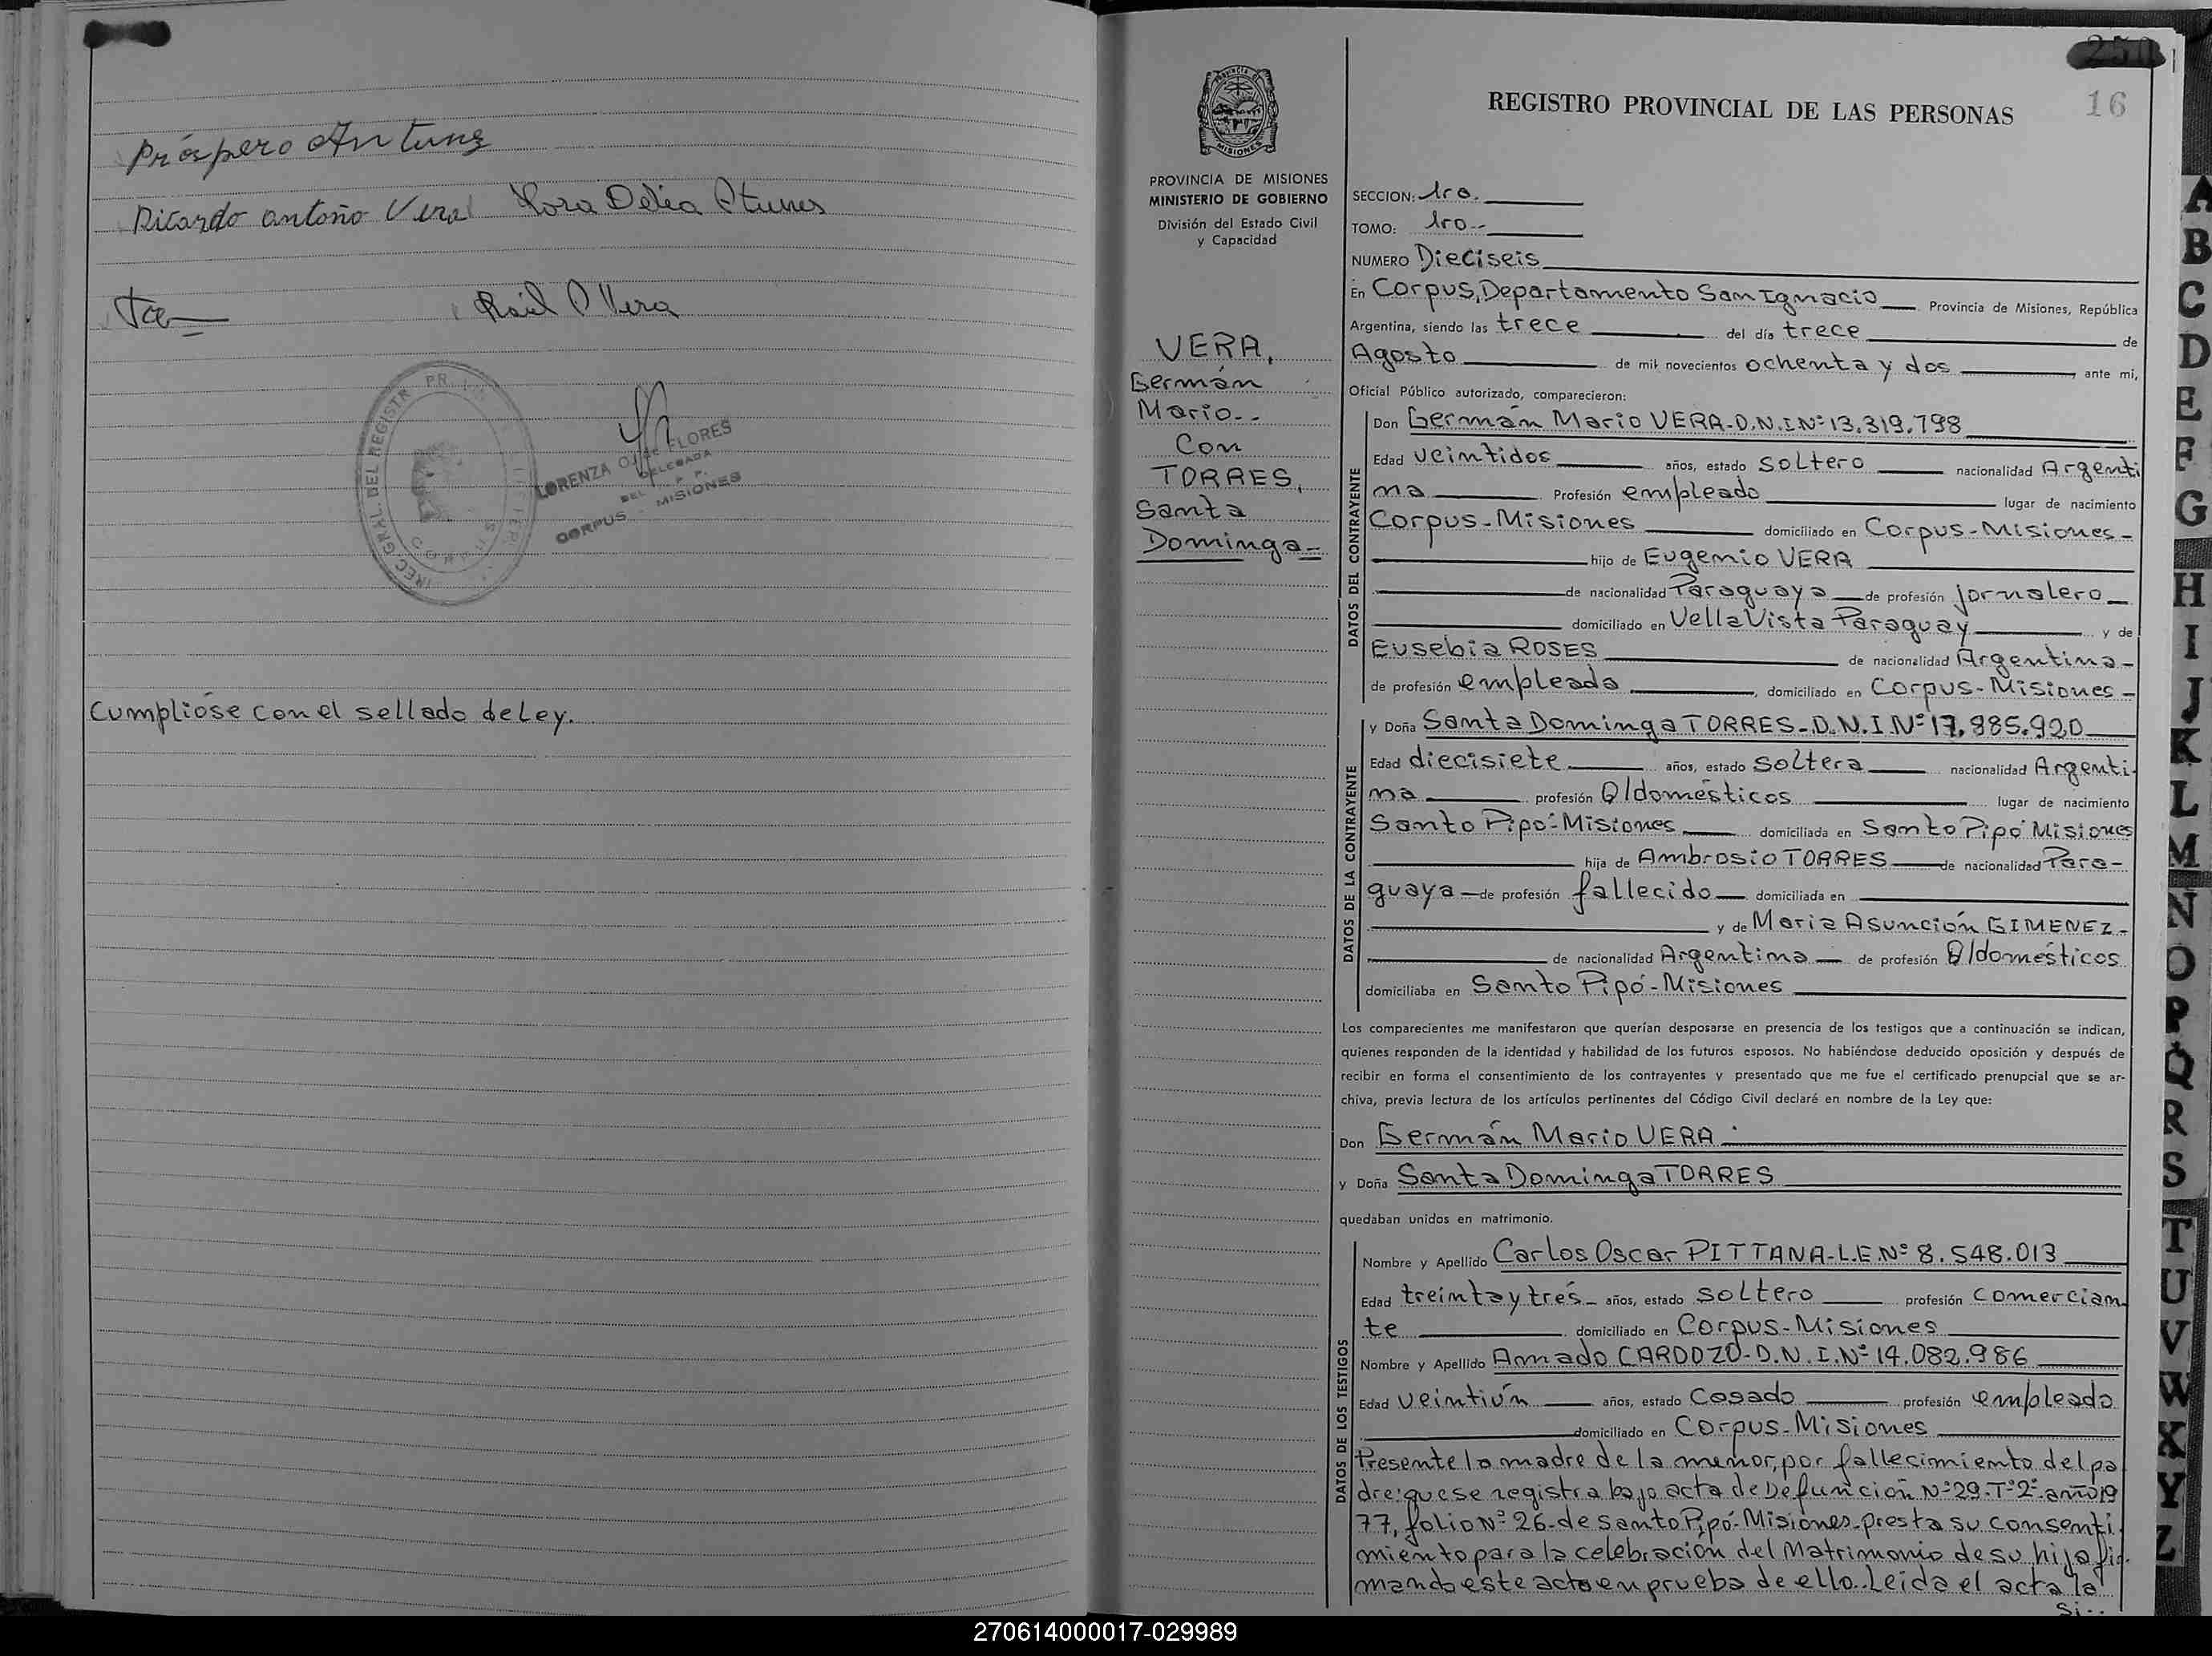 Próspero Antunes
Ricardo antonio Vera
Raúl Vera
DIREC. GRAL. DEL REGISTR PR
CORPUS
LORENZA FLORES
DELEGADA
DEL P.
CORPUS - MISIONES
Cumplióse con el sellado de Ley.
250
16
REGISTRO PROVINCIAL DE LAS PERSONAS
PROVINCIA DE MISIONES
MINISTERIO DE GOBIERNO
División del Estado Civil
y Capacidad
VERA,
Germán
Mario--
Con
TORRES,
Santa
Dominga-
SECCION: 1ra.
TOMO: 1ro--
NUMERO Dieciseis
En Corpus, Departamento San Ignacio Provincia de Misiones, República
Argentina, siendo las trece del día trece de
Agosto de mil novecientos ochenta y dos ante mi,
Oficial Público autorizado, comparecieron:
DATOS DEL CONTRAYENTE
Don Germán Mario VERA-D.N.I.Nº 13.319.798
Edad veintidos años, estado soltero nacionalidad Argenti
na Profesión empleado lugar de nacimiento
Corpus-Misiones domiciliado en Corpus-Misiones-
hijo de Eugenio VERA
de nacionalidad Paraguaya de profesión jornalero
domiciliado en Vella Vista Paraguay y de
Eusebia ROSES de nacionalidad Argentina-
de profesión empleada, domiciliado en Corpus-Misiones-
DATOS DE LA CONTRAYENTE
y Doña Santa Dominga TORRES-D.N.I.Nº 17.885.920
Edad diecisiete años, estado soltera nacionalidad Argenti-
na profesión Q/domésticos lugar de nacimiento
Santo Pipó-Misiones domiciliada en Santo Pipó Misiones
hija de Ambrosio TORRES de nacionalidad Para-
guaya-de profesión fallecido domiciliada en
y de Maria Asunción GIMENEZ-
de nacionalidad Argentina de profesión Q/domésticos
domiciliaba en Santo Pipó-Misiones
Los comparecientes me manifestaron que querían desposarse en presencia de los testigos que a continuación se indican,
quienes responden de la identidad y habilidad de los futuros esposos. No habiéndose deducido oposición y después de
recibir en forma el consentimiento de los contrayentes y presentado que me fue el certificado prenupcial que se ar-
chiva, previa lectura de los artículos pertinentes del Código Civil declaré en nombre de la Ley que:
Don Germán Mario VERA
y Doña Santa Dominga TORRES
quedaban unidos en matrimonio.
DATOS DE LOS TESTIGOS
Nombre y Apellido Carlos Oscar PITTANA-L.E.Nº 8.548.013
Edad treinta y tres- años, estado soltero profesión comercian
te domiciliado en Corpus-Misiones
Nombre y Apellido Amado CARDOZO-D.N.I.Nº 14.082.986
Edad veintiún años, estado casado profesión empleado
domiciliado en Corpus-Misiones
Presente la madre de la menor, por fallecimiento del pa
dre: que se registra bajo acta de Defunción Nº 29-Tº 2º año 19
77, folio Nº 26-de Santo Pipó-Misiones-presta su consenti
miento para la celebración del Matrimonio de su hija fir
mando este acto en prueba de ello. Leida el acta la
si--
A
B
C
D
E
F
G
H
I
J
K
L
M
N
O
P
Q
R
S
T
U
V
W
X
Y
Z
270614000017-029989